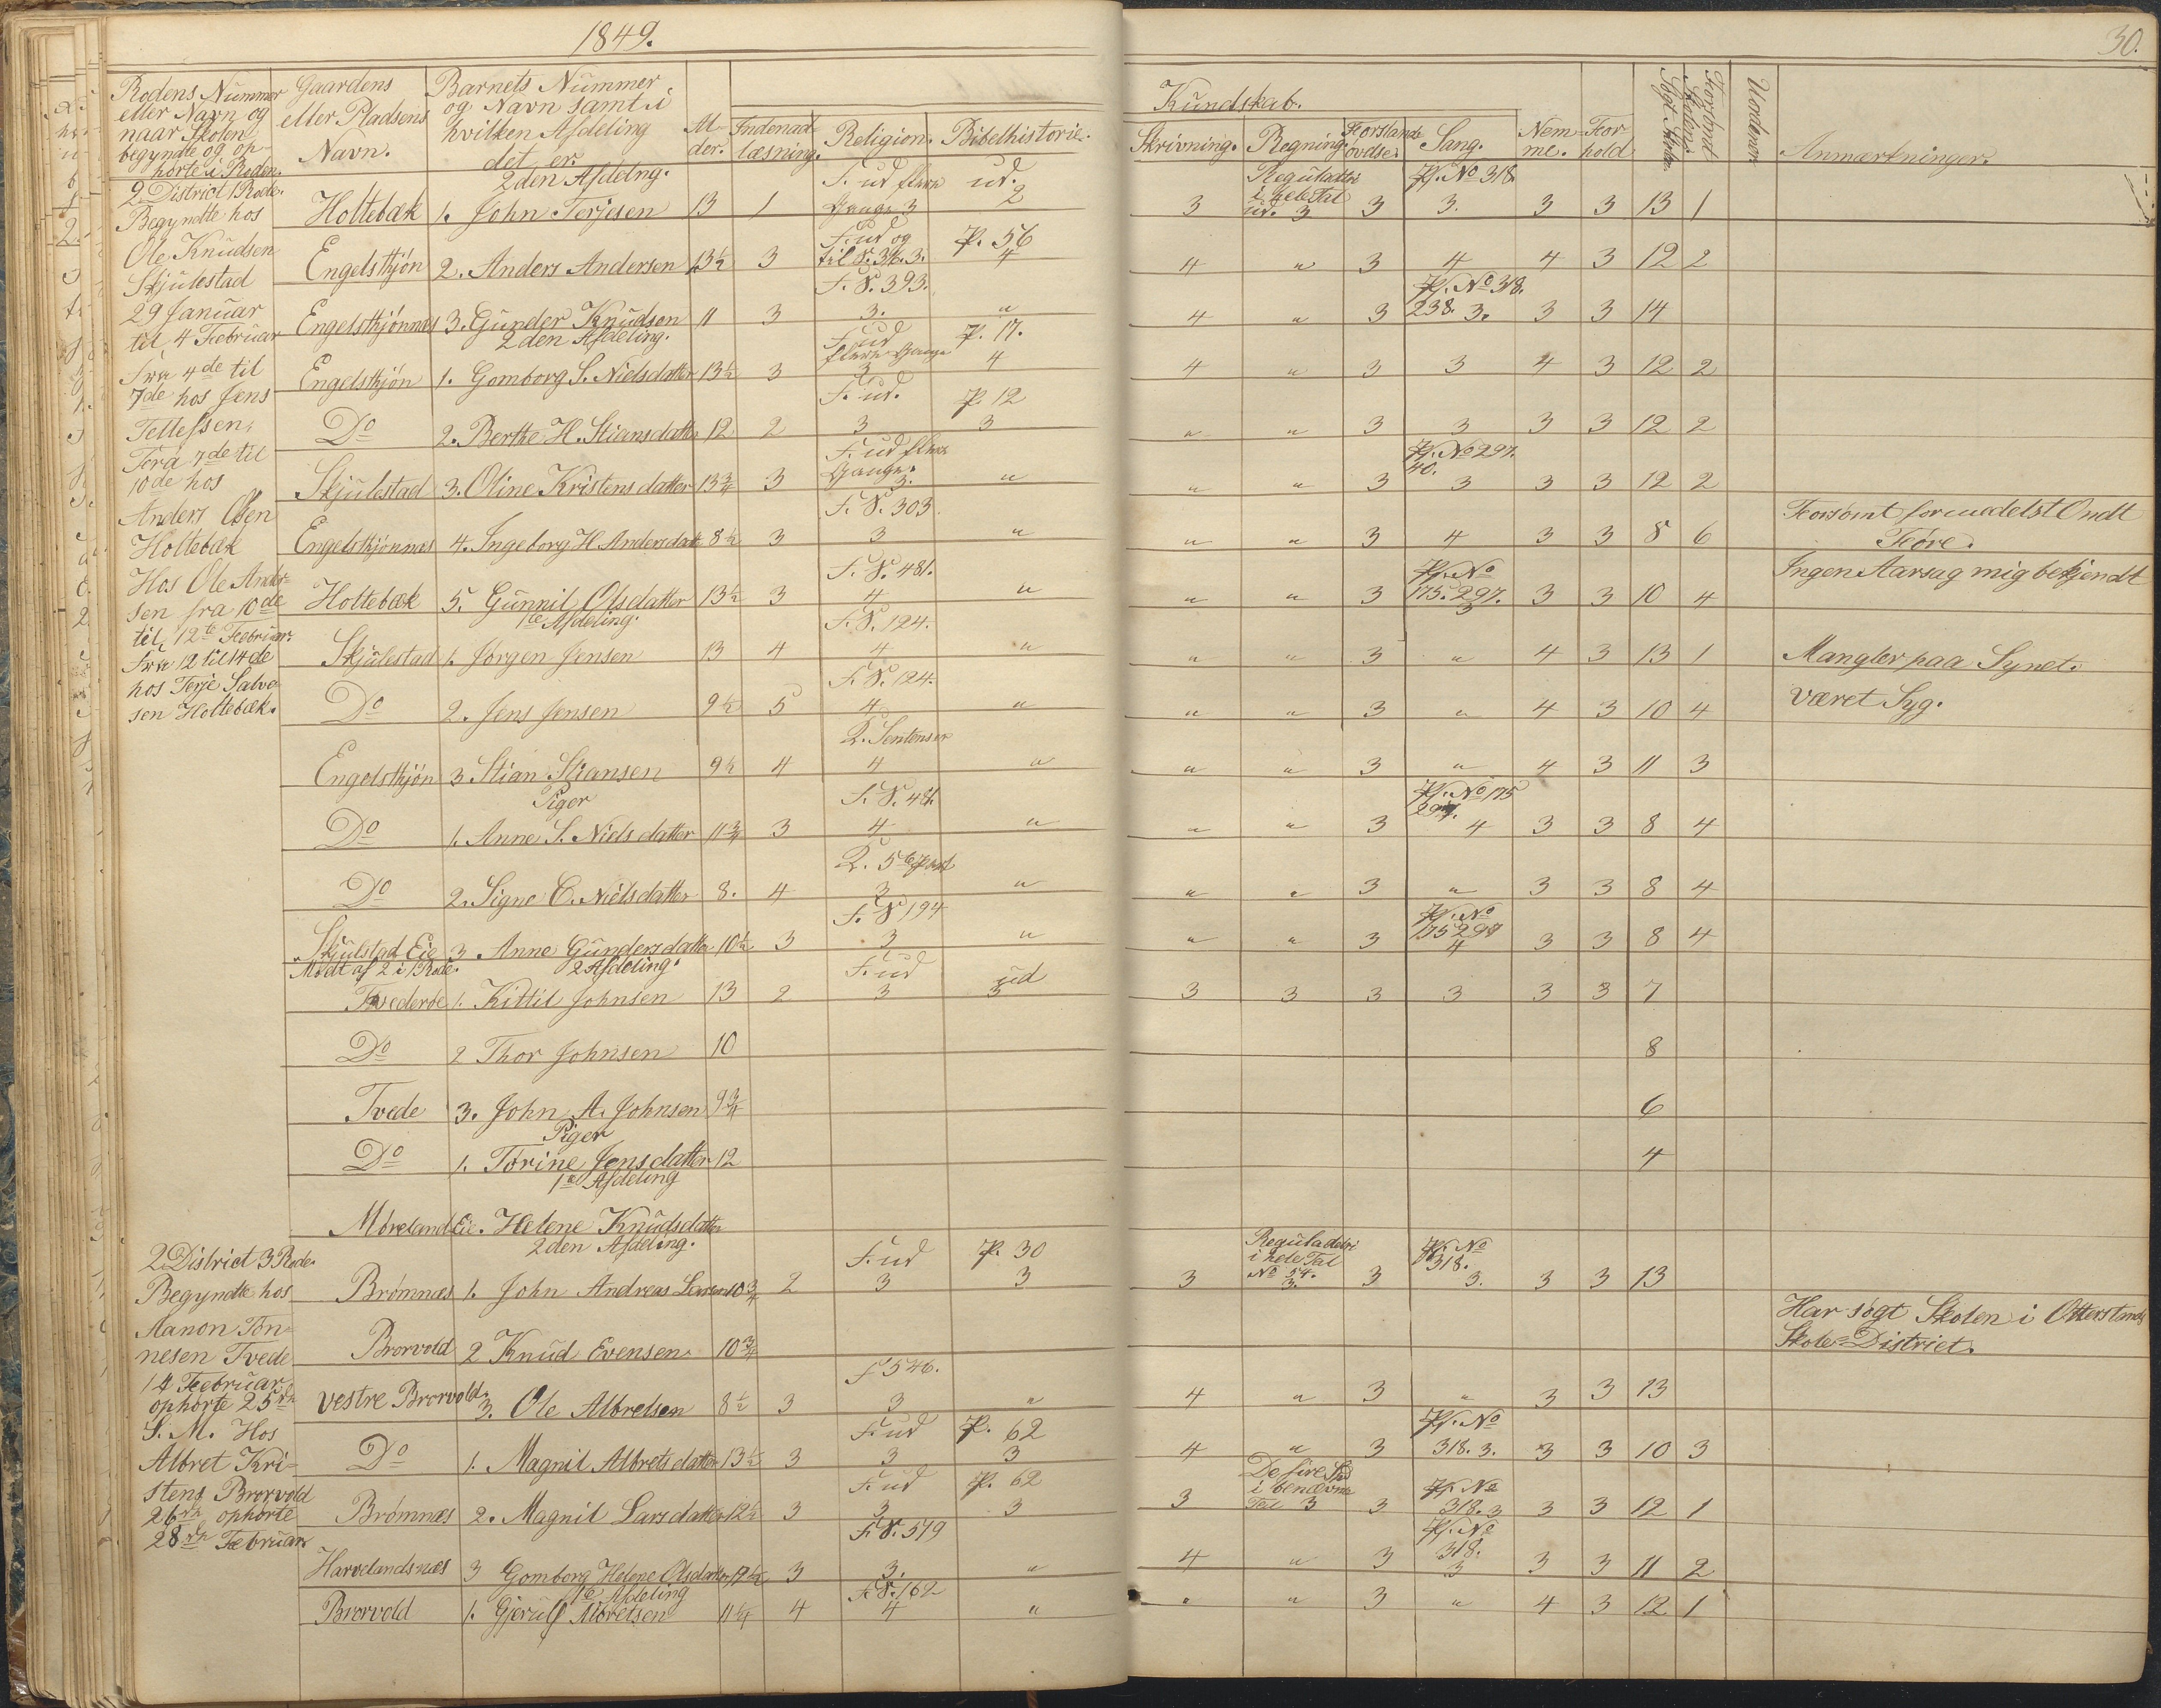 1849.
30.
Rodens Nummer eller Navn og naar Skolen begyndte og ophørte i Roden.
Gaardens eller Pladsens Navn.
Barnets Nummer og Navn samt i hvilken Afdeling det er
Alder.
Indenadlæsning.
Religion.
Bibelhistorie.
Kundskab.
Skrivning.
Regning.
Sang.
Nemme.
Forhold
Søgt Skolen
Forsømt Skolen
Uordener
Anmærkninger.
2 District 1 Rode.
Begyndte hos
Ole Knudsen
Skjulestad
29 Januar
til 4 Februar
Fra 4de til
7de hos Jens
Tellefsen,
Fora 7de til
10de hos
Anders Olsen
Holtebæk
Hos Ole Andersen fra 10de
til 12te Februar.
Fra 12 til 14de
hos Terje Salvesen Holtebæk.
2den Afdelng.
Holtebæk 1. John Terjesen 13 1 F. ud flere Gange 3 ud. 2 3 i hele Tal ud. 3 3 Ps. No 318. 3. 3 3 13 1
Engelsthjøn 2. Anders Andersen 13½ 3 F. ud og P. 56 4 4 " 3 4 4 3 12 2
Engelsthjønnes 3. Gunder Knudsen 11 3 F. S. 393. 3. " 4 " 3 Ps. No 318. 238. 3. 3 3 14
2den Afdeling.
Engelsthjøn 1. Gomborg S. Nielsdatter 13½ 3 F. ud flere Gange 3 P. 17. 4 4 " 3 3 4 3 12 2
Do 2. Berthe H. Stiansdatter 12 2 F. ud. 3 P. 12 3 " " 3 3 3 3 12 2
Skjulestad 3. Oline Kristensdatter 13¾ 3 F. ud flere Gange. 3. " " " 3 Ps. No 297. 40. 3 3 3 12 2
Engelsthjønnes 4. Ingeborg H. Andersdatt 8½ 3 F. S. 303. 3 " " " 3 4 3 3 8 6 Forsømt formedelst Ondt Føre.
Holtebæk 5. Gunnil Olsdatter 13½ 3 F. S. 481. 4 " " " 3 Ps. No 175. 297. 3 3 3 10 4 Ingen Aarsag mig bekjendt
1te Afdeling.
Skjulestad 1. Jørgen Jensen 13 4 F. S. 124. 4 " " " 3 " 4 3 13 1 Mangler paa Synet.
Do 2. Jens Jensen 9½ 5 F. S. 124. 4 " " " 3 " 4 3 10 4 været Syg.
Engelsthjøn 3 Stian Stiansen 9½ 4 L. Sentenser 4 " " " 3 " 4 3 11 3
Piger
Do 1. Anne S. Nielsdatter 11¾ 3 F. S. 481. 4 " " " 3 Ps. No 175 297. 4 3 3 8 4
Do 2. Signe C. Nielsdatter 8. 4 L. 5te Part 3 " " " 3 " 3 3 8 4
Skjulstad Eie 3 Anne Gundersdatter 10½ 3 F. S 194 3 " " " 3 Ps. No 175 297 4 3 3 8 4
Mødt af 2 i 1 Rode.
2 Afdeling.
Tvederøe 1. Kittil Johnsen 13 2 F. ud 3 ud 3 3 3 3 3 3 3 7
Do 2 Thor Johnsen 10 8
Tvede 3. John A. Johnsen 9¾ 6
Piger
Do 1. Torine Jensdatter 12 4
1te Afdeling
Møreland Eie. Helene Knudsdatter
2 District 3 Rode.
Begyndte hos
Aanon Tønnesen Tvede
14 Februar
ophørte 25de
S. M. Hos
Albret Kristens Brorvold
26de ophørte
28de Februar
2den Afdeling.
Brømnæs 1. John Andreas Larsen 10¾ 2 F. ud 3 P. 30 3 3 i hele Tal No 54. 3. 3 Ps. No 318. 3. 3 3 13
Brorvold 2 Knud Evensen 10¾ Har søgt Skolen i Skole-District.
vestre Brorvold 3. Ole Albretsen 8½ 3 F 546. 3 " 4 " 3 " 3 3 13
Do 1. Magnil Albretsdatter 13½ 3 F. ud 3 P. 62 3 4 " 3 Ps. No 318. 3. 3 3 10 3
Brømnæs 2. Magnil Larsdatter 12½ 3 F. ud 3 P. 62 3 3 De fire i benævnte Tal 3 3 Ps. No 318. 3 3 3 12 1
Havrelandsnæs 3 Gomborg Helene Olsdatter 12½ 3 F. S. 579 3. " 4 " 3 Ps. No 318. 3 3 3 11 2
1te Afdeling
Brorvold 1. Gjerulf Albretsen 11¼ 4 F. S. 162 4 " " " 3 " 4 3 12 1